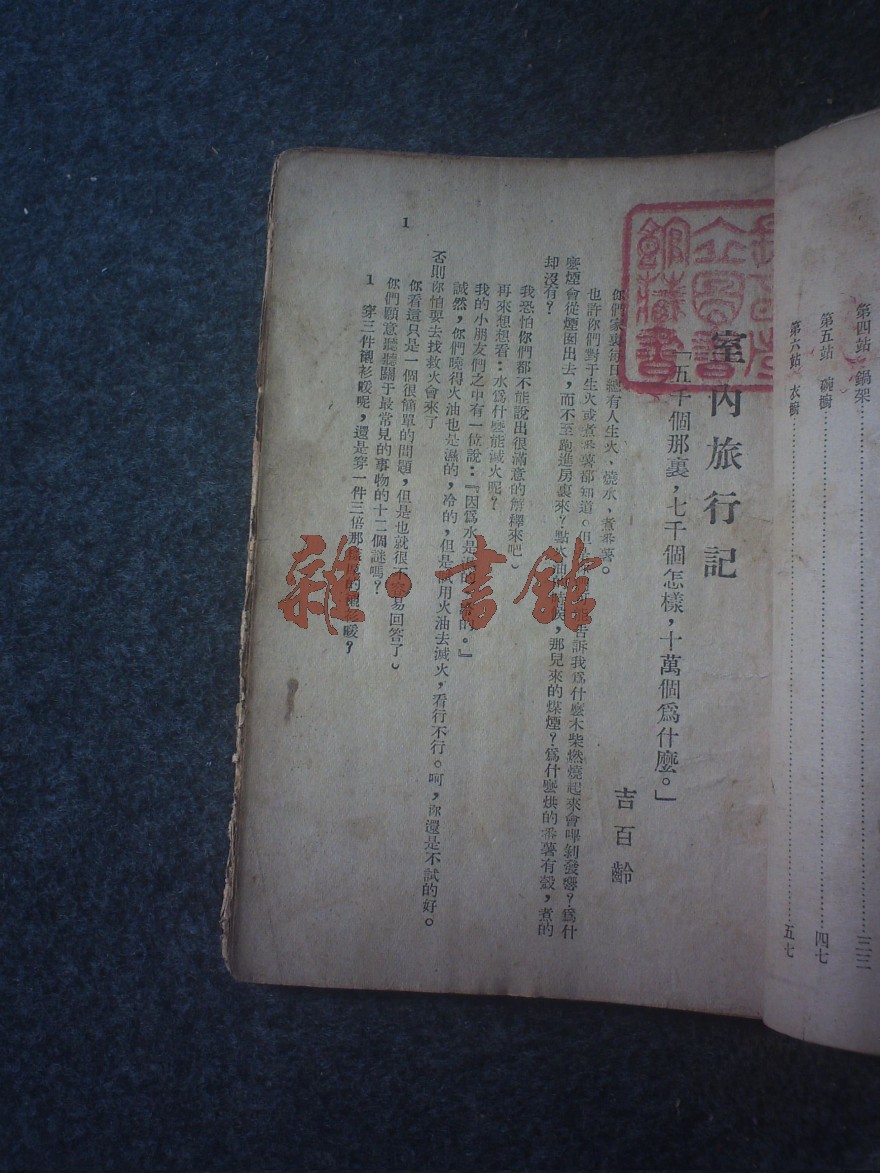 第四站 鍋架 三三
第五站 碗櫥 四七
第六站 衣櫥 五七
室內旅行記
「五千個那裏，七千個怎樣，十萬個爲什麼。」
吉百齡
你們家裏每日總有人生火、燒水、煮番薯。
也許你們對于生火或煮番薯都知道。但 告訴我爲什麼木柴燃燒起來會嗶剝發響？爲什
麼煙會從煙囪出去，而不至跑進房裏來？點火油 那兒來的煤煙？爲什麼烘的番薯有殼，煮的
却沒有？
我恐怕你們都不能說出很滿意的解釋來吧。
再來想想看：水爲什麼能滅火呢？
我的小朋友們之中有一位說：『因爲水是濕的，冷的。』
誠然，你們曉得火油也是濕的，冷的，但是 用火油去滅火，看行不行。呵，你還是不試的好。
否則你怕要去找救火會來了
你看這只是一個很簡單的問題，但是也就很不容易回答了。
你們願意聽聽關于最常見的事物的十二個謎嗎？
1 穿三件襯衫暖呢，還是穿一件三倍那 的 暖？
1
雜·書館